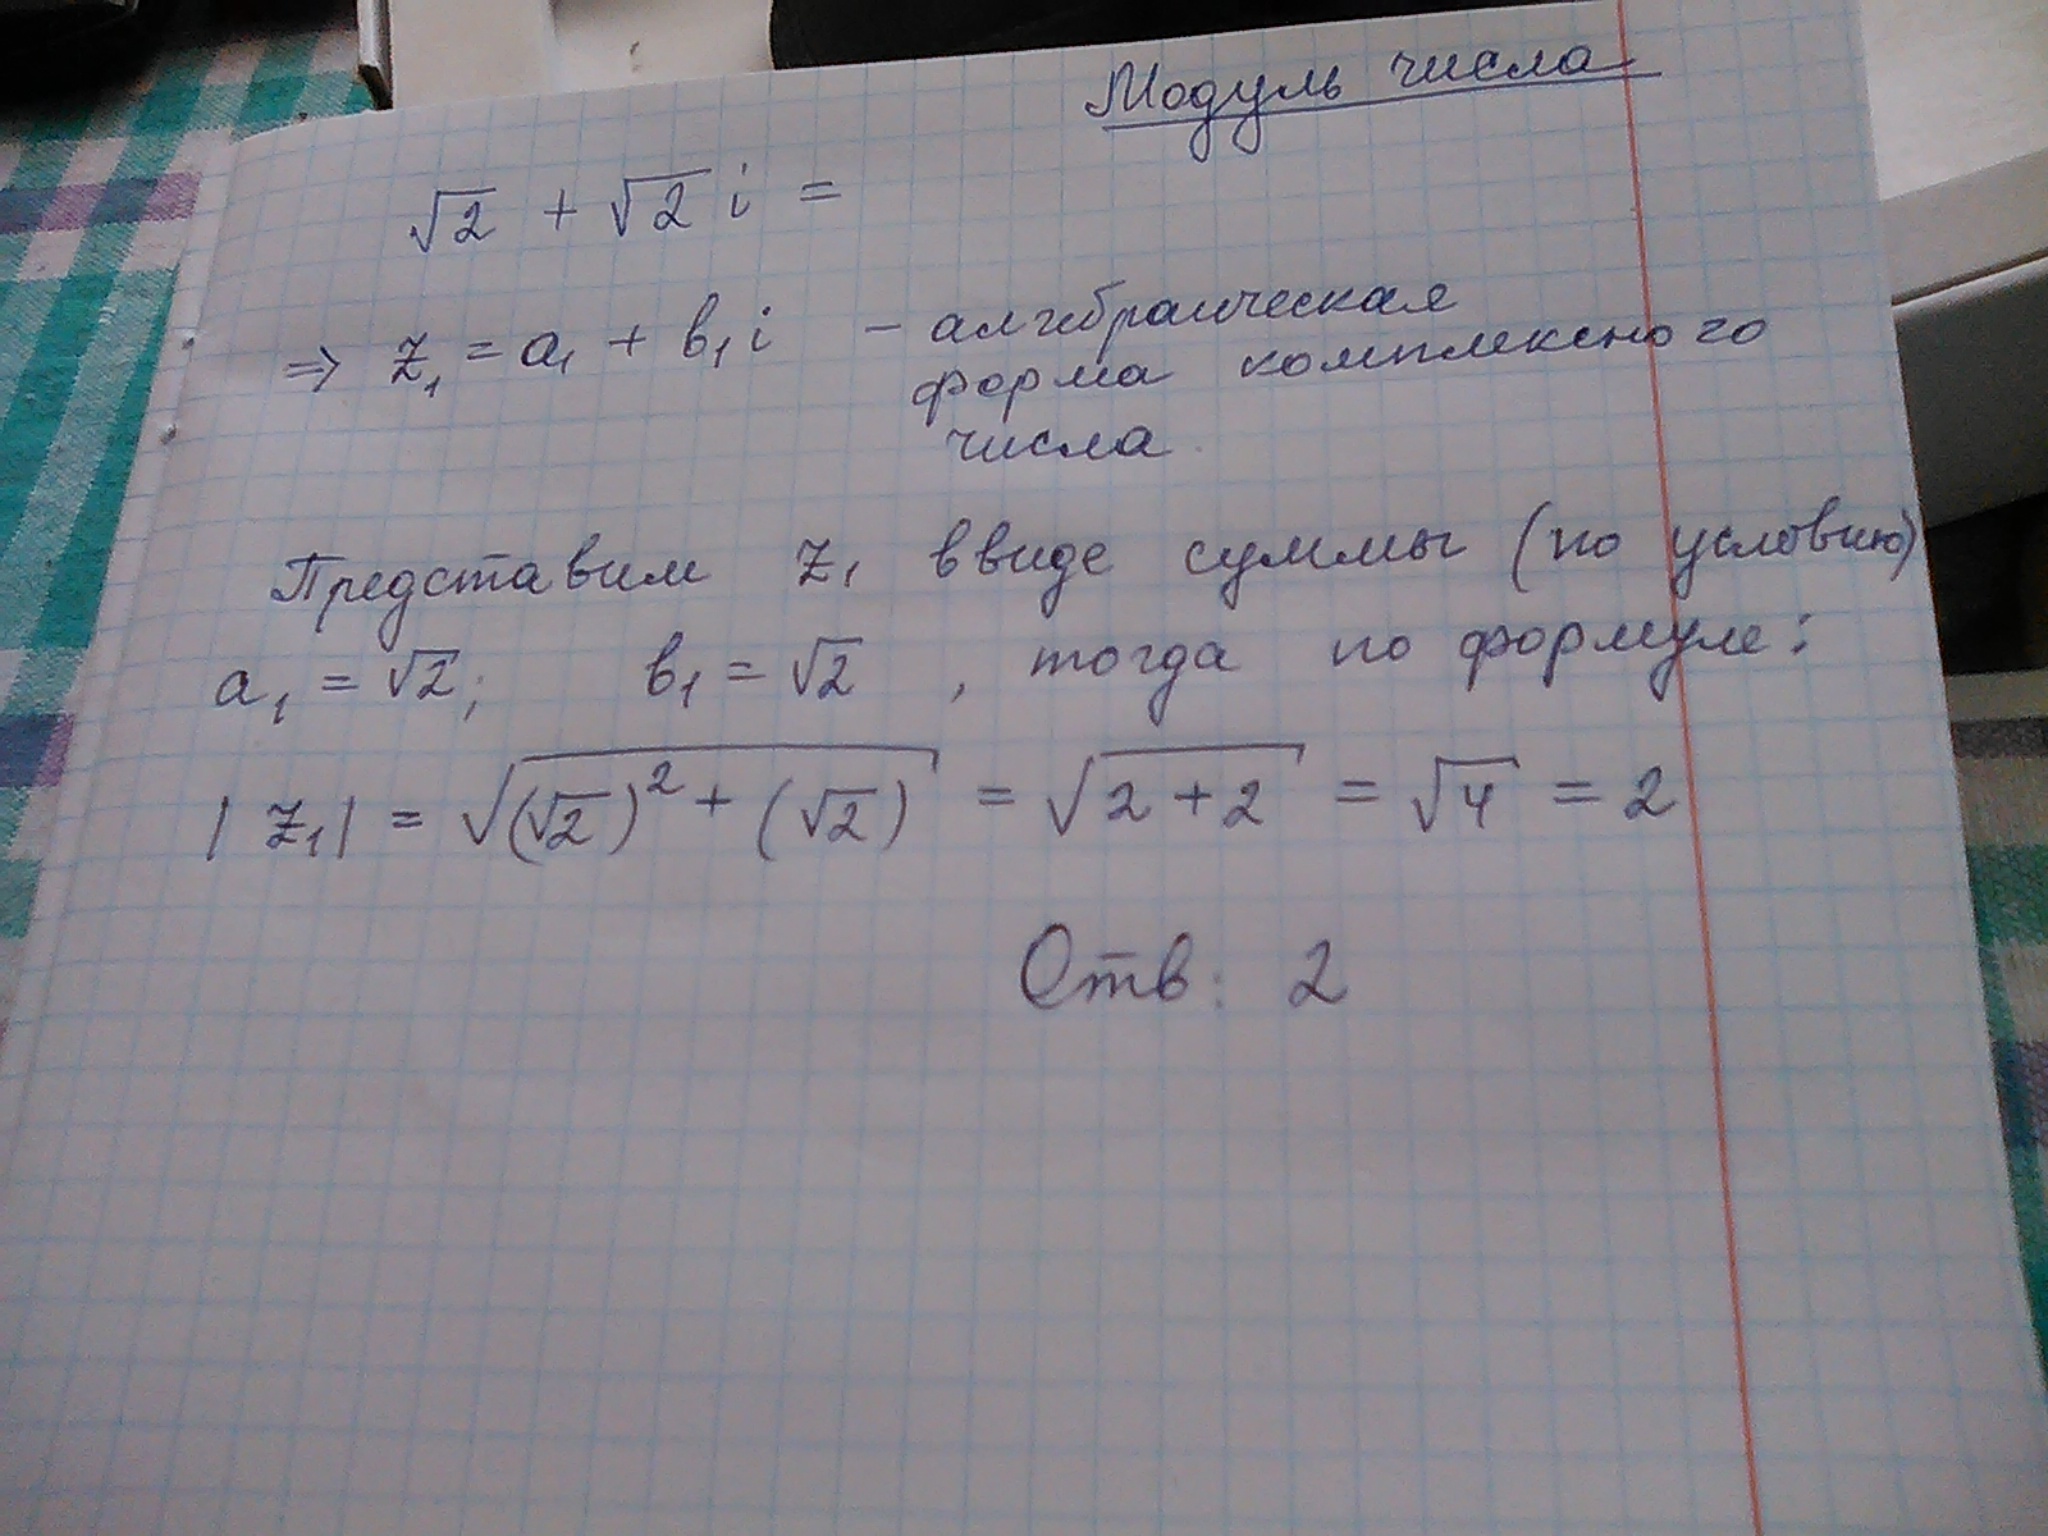 Модуль числа
√2 + √2 i =
⇒ z₁ = a₁ + b₁i – алгебраическая
форма комплексного
числа
Представим z₁ ввиде суммы (по условию)
a₁ = √2; b₁ = √2 , тогда по формуле:
|z₁| = √((√2)² + (√2)) = √(2+2) = √4 = 2
Отв: 2